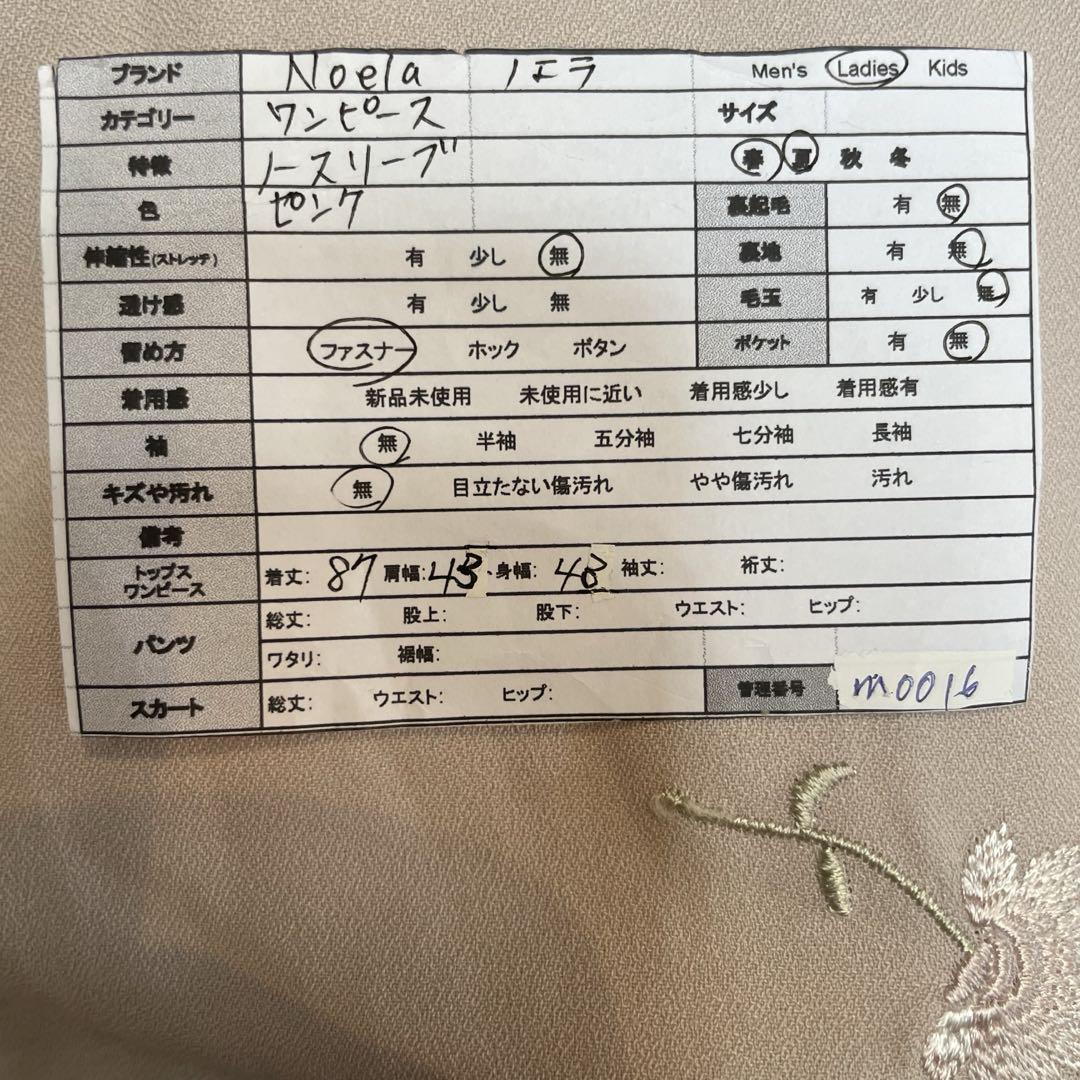 ブランド Noela ノエラ Men's Ladies Kids
カテゴリー ワンピース サイズ
特徴 ノースリーブ 春 夏 秋 冬
色 ピンク 裏起毛 有 無
伸縮性(ストレッチ) 有 少し 無 裏地 有 無
透け感 有 少し 無 毛玉 有 少し 無
留め方 ファスナー ホック ボタン ポケット 有 無
着用感 新品未使用 未使用に近い 着用感少し 着用感有
袖 無 半袖 五分袖 七分袖 長袖
キズや汚れ 無 目立たない傷汚れ やや傷汚れ 汚れ
備考
トップス ワンピース 着丈: 87 肩幅: 43 身幅: 43 袖丈: 裄丈:
パンツ 総丈: 股上: 股下: ウエスト: ヒップ:
ワタリ: 裾幅:
スカート 総丈: ウエスト: ヒップ: 管理番号 m0016